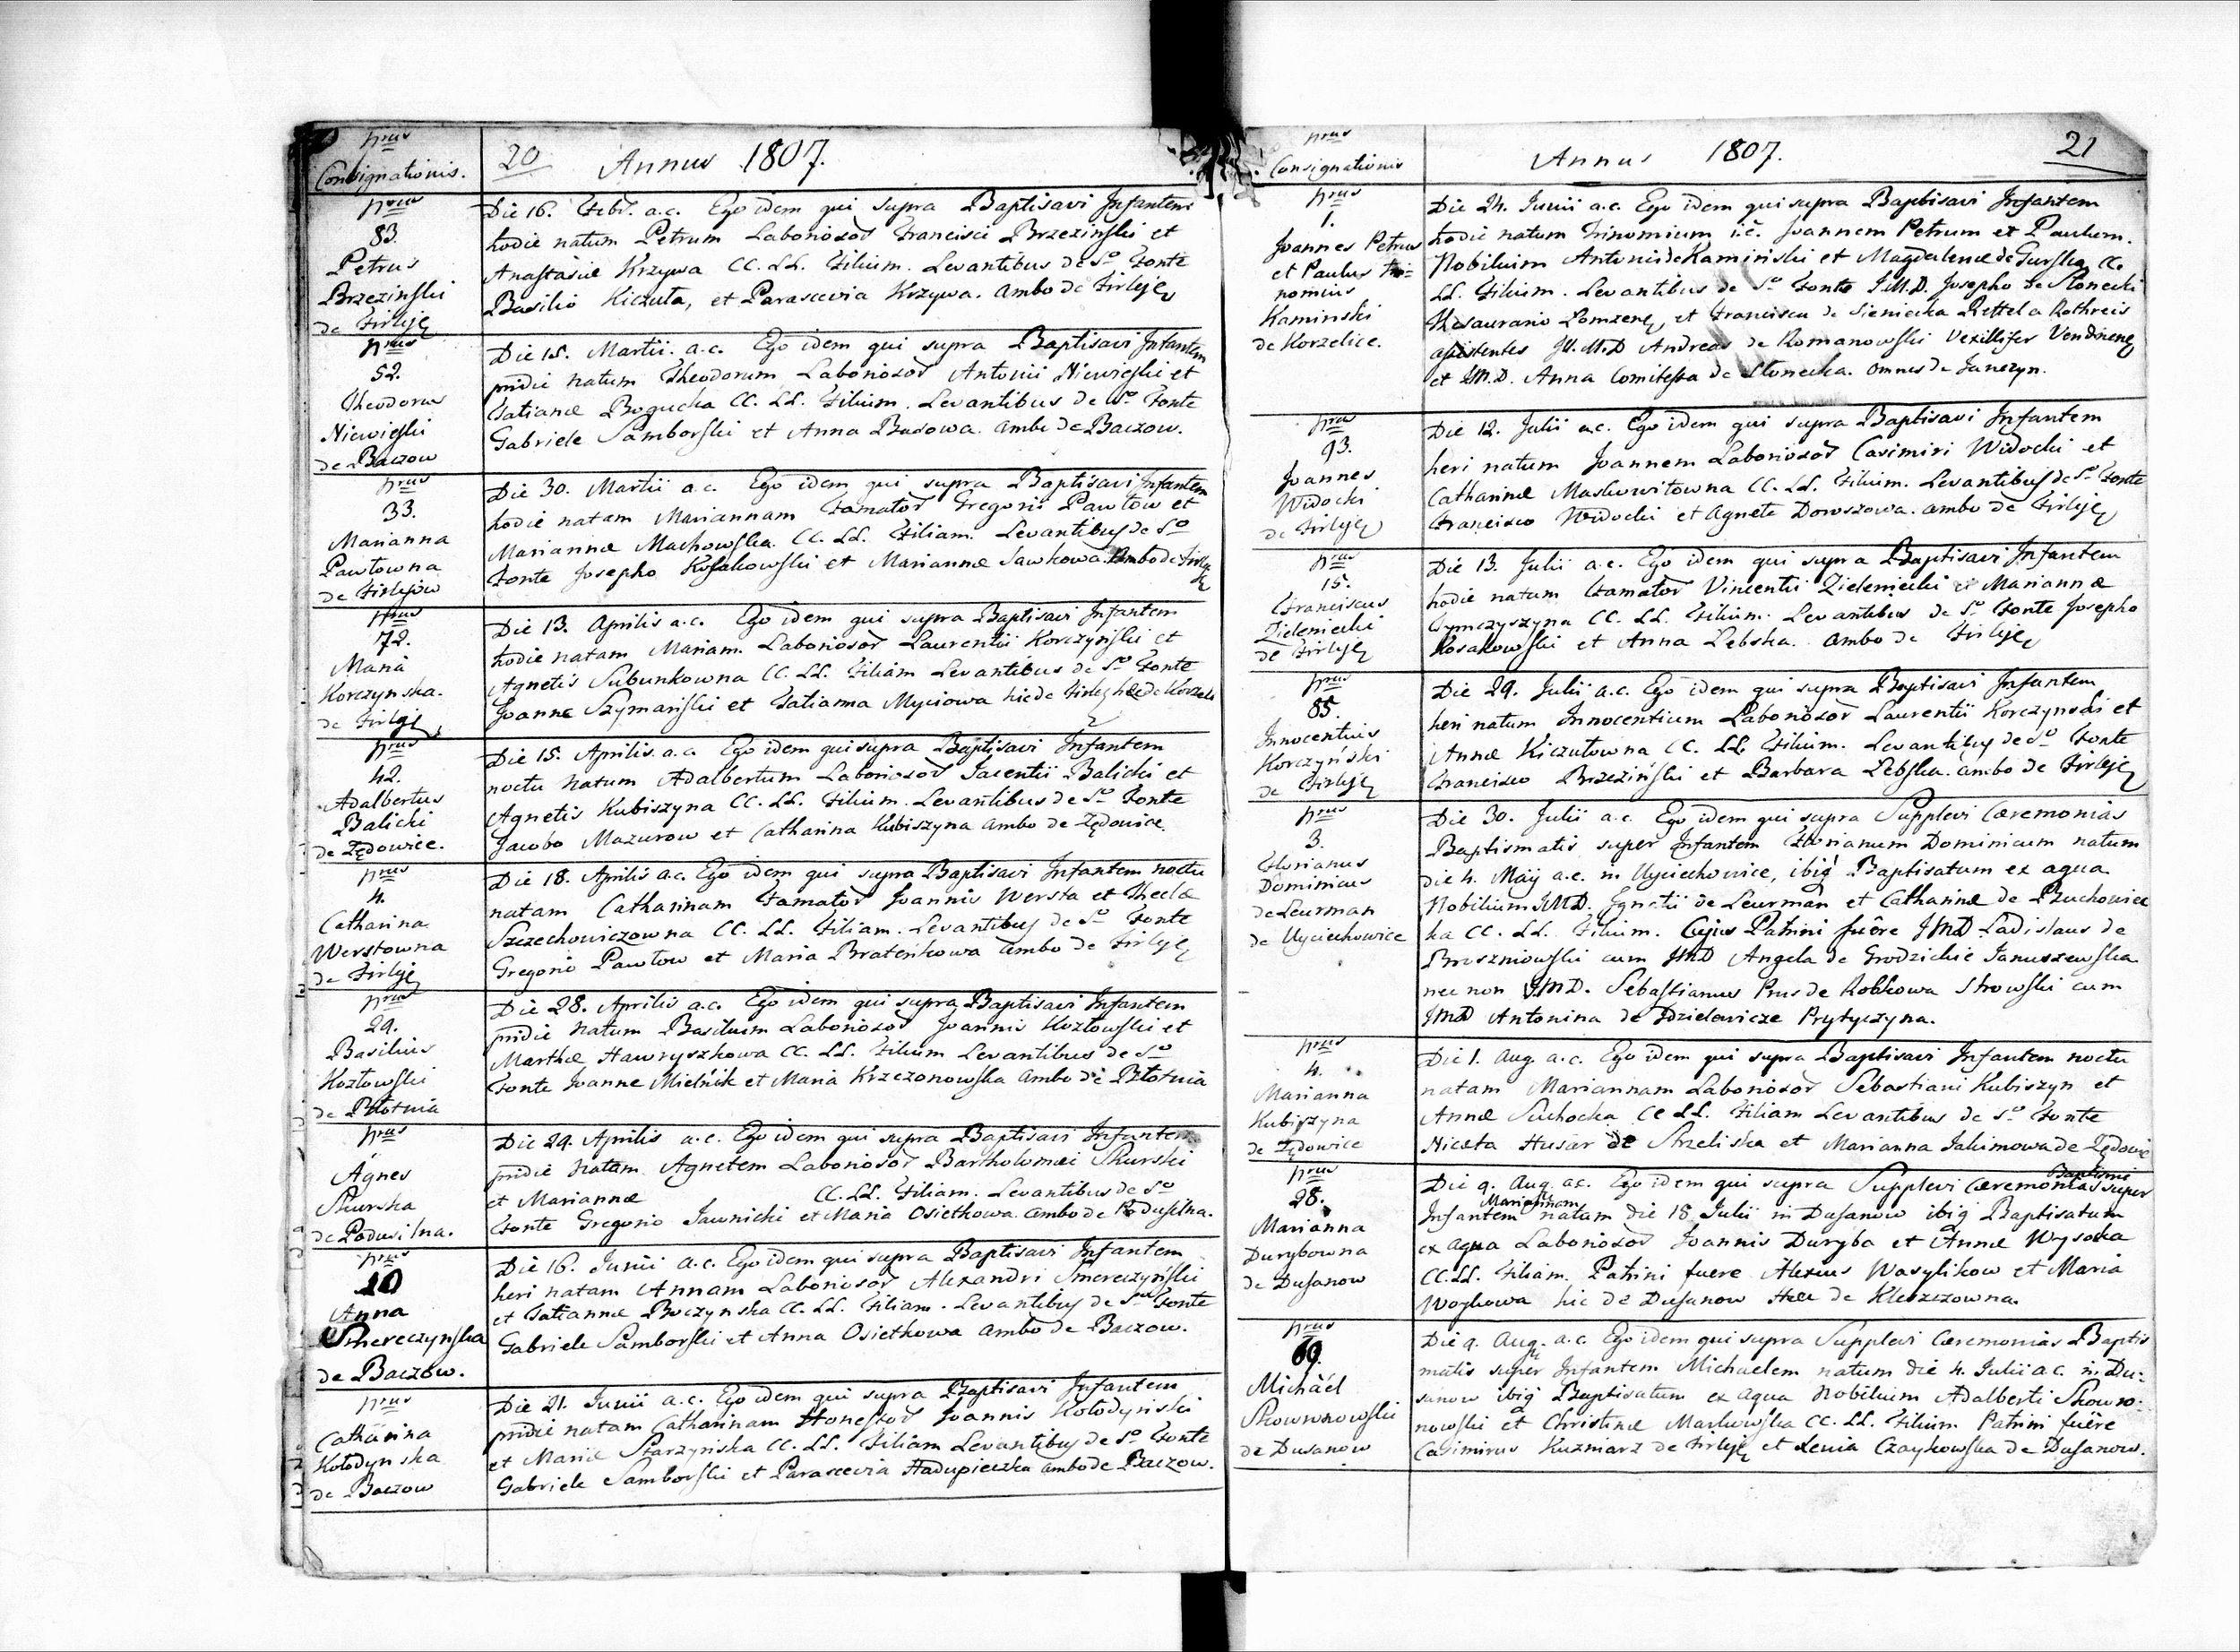 nrus
Consignationis.
20 Annus 1807.
nrus
83.
Petrus
Brzezinski
de Firleję
Die 16. Febr. a.c. Ego idem qui supra Baptisavi Infantem
hodie natum Petrum Laboriosor Francisci Brzezinski et
Anastasiæ Krzywa CC. LL. Filium. Levantibus de So Fonte
Basilio Kiczuła, et Parascevia Krzywa. ambo de Firleję
nrus
52.
Theodorus
Niewieski
de Baczow
Die 15. Martii. a.c. Ego idem qui supra Baptisavi Infantem
pridie natum Theodorum Laboriosor Antonii Niewieski et
Tatianæ Bogucka CC. LL. Filium. Levantibus de So Fonte
Gabriele Samborski et Anna Busowa. ambo de Baczow.
nrus
33.
Marianna
Pawłowna
de Firlejow
Die 30. Martii a.c. Ego idem qui supra Baptisavi Infantem
hodie natam Mariannam Famator Gregorii Pawłow et
Mariannæ Machowska CC. LL. Filiam. Levantibus de So
Fonte Josepho Kosakowski et Mariannæ Sawkowa. Ambo de Firleję
nrus
72.
Maria
Korczynska.
de Firleję
Die 13. Aprilis a.c. Ego idem qui supra Baptisavi Infantem
hodie natam Mariam. Laboriosor Laurentii Korczyński et
Agnetis Subunkowna CC. LL. Filiam Levantibus de So Fonte
Joanne Szymański et Tatianna Myciowa hic de Firleję hæc de Korzelic
nrus
42.
Adalbertus
Balicki
de Lędowice.
Die 15. Aprilis. a.c. Ego idem qui supra Baptisavi Infantem
noctu natum Adalbertum Laboriosor Jacentii Balicki et
Agnetis Kubiszyna CC. LL. Filium. Levantibus de So Fonte
Jacobo Mazurow et Catharina Kubiszyna ambo de Lędowice.
nrus
4.
Catharina
Werstowna
de Firleję
Die 18. Aprilis a.c. Ego idem qui supra Baptisavi Infantem noctu
natam Catharinam Famator Joannis Wersta et Theclæ
Szczechowiczowna CC. LL. Filiam. Levantibus de So Fonte
Gregorio Pawłow et Maria Bratenkowa ambo de Firleję
nrus
29.
Basilius
Kozłowski
de Błotnia
Die 28. Aprilis a.c. Ego idem qui supra Baptisavi Infantem
pridie natum Basilium Laboriosor Joannis Kozłowski et
Marthæ Hawryszkowa CC. LL. Filium Levantibus de So
Fonte Joanne Mielnik et Maria Krzezonowska ambo de Błotnia
nrus
Agnes
Skurska
de Podusilna.
Die 29. Aprilis a.c. Ego idem qui supra Baptisavi Infantem
pridie natam Agnetem Laboriosor Bartholomæi Skurski
et Mariannæ CC. LL. Filiam. Levantibus de So
Fonte Gregorio Jawnicki et Maria Osietkowa. ambo de Podusilna.
nrus
10
Anna
Smereczynska
de Baczow.
Die 16. Junii a.c. Ego idem qui supra Baptisavi Infantem
heri natam Annam Laboriosor Alexandri Smereczyński
et Tatiannæ Boczynska CC. LL. Filiam. Levantibus de So Fonte
Gabriele Samborski et Anna Osietkowa ambo de Baczow.
nrus
Catharina
Kołodynska
de Baczow
Die 21. Junii a.c. Ego idem qui supra Baptisavi Infantem
pridie natam Catharinam Honestor Joannis Kołodyński
et Mariæ Starzyńska CC. LL. Filiam Levantibus de So Fonte
Gabriele Samborski et Parascevia Hadupieczka ambo de Baczow.
nrus
Consignationis
Annus 1807.
21
nrus
1.
Joannes Petrus
et Paulus tri=
nomius
Kaminski
de Korzelice.
Die 24. Junii a.c. Ego idem qui supra Baptisavi Infantem
hodie natum Trinomium i.e. Joannem Petrum et Paulum.
Nobilium Antonii de Kamiński et Magdalenæ de Gurska CC.
LL. Filium. Levantibus de So Fonte I.M.D. Josepho de Słonecki
Thesaurario Łomzenę, et Francisca de Sieniecka Rettel a Rothreis
assistentes Il. M.D Andreas de Romanowski Vexillifer Vendinenę
et I.M.D. Anna Comitessa de Słonecka. omnes de Janczyn.
nrus
93.
Joannes
Widocki
de Firleję
Die 12. Julii a.c. Ego idem qui supra Baptisavi Infantem
heri natum Joannem Laboriosor Casimiri Widocki et
Catharinæ Maskowitowna CC. LL. Filium. Levantibus de So Fonte
Francisco Widocki et Agnete Dowszowa. ambo de Firleję
nrus
15.
Franciscus
Zieleniecki
de Firleję
Die 13. Julii a.c. Ego idem qui supra Baptisavi Infantem
hodie natum Famator Vincentii Zieleniecki et Mariannæ
Tymczyszyna CC. LL. Filium. Levantibus de So Fonte Josepho
Kosakowski et Anna Lebska. ambo de Firleję
nrus
85.
Innocentius
Korczyński
de Firleję
Die 29. Julii a.c. Ego idem qui supra Baptisavi Infantem
heri natum Innocentium Laboriosor Laurentii Korczynski et
Annæ Kiczułowna CC. LL. Filium. Levantibus de So Fonte
Francisco Brzeziński et Barbara Lebska. ambo de Firleję
nrus
3.
Florianus
Dominicus
de Leurman
de Uyciechowice
Die 30. Julii a.c. Ego idem qui supra Supplevi Cæremonias
Baptismatis super Infantem Florianum Dominicum natum
die 4. Maij a.c. in Uyciechowice, ibiq Baptisatum ex aqua
Nobilium I.M.D. Ignatii de Leurman et Catharinæ de Bzuchowiec
ka CC. LL. Filium. Cujus Patrini fuêre I.M.D Ladislaus de
Broszniowski cum I.M.D Angela de Grodzickie Januszewska
nec non I.M.D. Sebastianus Prus de Robkowa Strowski cum
I.M.D Antonina de Idzielewicze Prytyczyna.
nrus
4.
Marianna
Kubiszyna
de Lędowice
Die 1. Aug. a.c. Ego idem qui supra Baptisavi Infantem noctu
natam Mariannam Laboriosor Sebastiani Kubiszyn et
Annæ Suchocka CC LL. Filiam Levantibus de So Fonte
Niceta Husar de Strzeliska et Marianna Jakimowa de Lędowic
nrus
28.
Marianna
Durybowna
de Dusanow
Die 9. Aug. a.c. Ego idem qui supra Supplevi Cæremonias Baptismi super
Infantem Mariannam natam die 18 Julii in Dusanow ibiq Baptisatam
ex aqua Laboriosor Joannis Duryba et Annæ Wysocka
CC. LL. Filiam. Patrini fuere Alexius Wasylikow et Maria
Woykowa hic de Dusanow Hæc de Kleszczowna.
nrus
69.
Michäel
Skowronowski
de Dusanow
Die 9. Aug. a.c. Ego idem qui supra Supplevi Cæremonias Baptis
matis super Infantem Michaelem natum die 4. Julii a.c. in Du=
sanow ibiq Baptisatum ex aqua Nobilium Adalberti Skowro=
nowski et Christinæ Markowska CC. LL. Filium Patrini fuêre
Casimirus Kuzniarz de Firleję et Xenia Czaykowska de Dusanow.